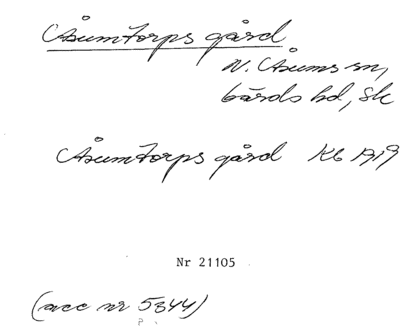 Åsumtorps gård
N. Åsums sn,
Gärds hd, Sk
Åsumtorps gård KG 1919
Nr 21105
(acc nr 5344)